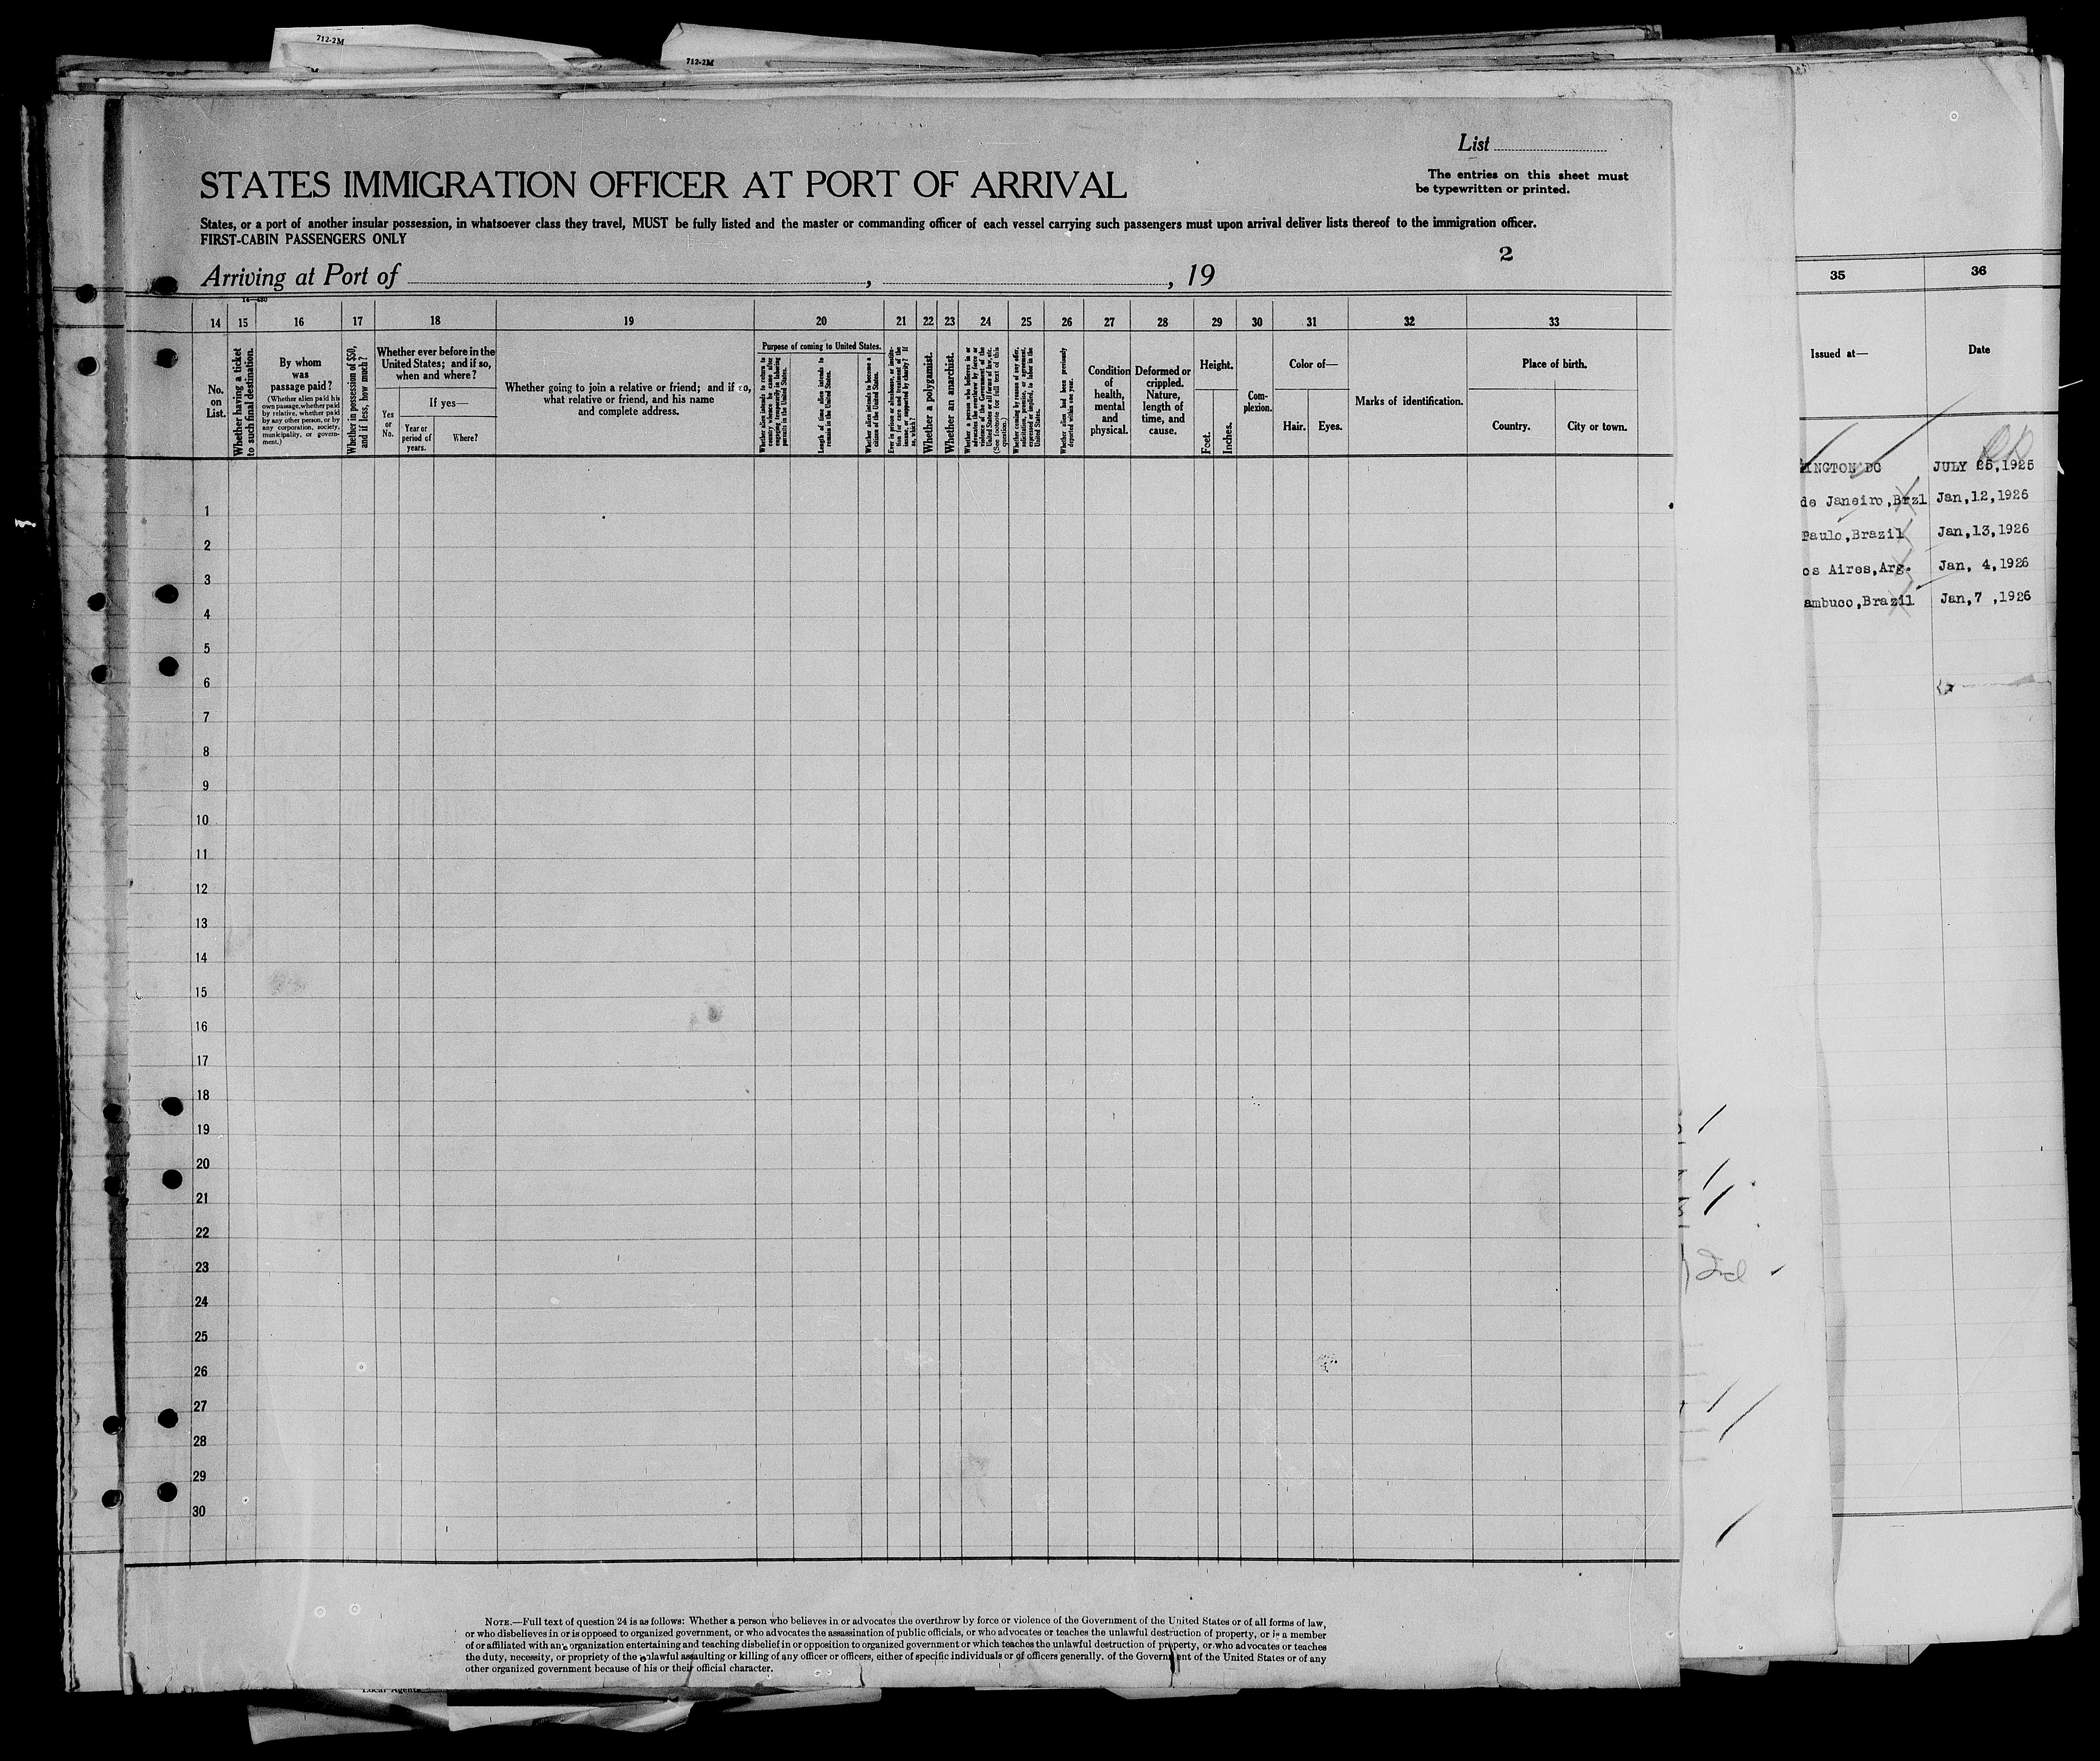 712-2M
712-2M
List
STATES IMMIGRATION OFFICER AT PORT OF ARRIVAL
The entries on this sheet must
be typewritten or printed.
States, or a port of another insular possession, in whatsoever class they travel, MUST be fully listed and the master or commanding officer of each vessel carrying such passengers must upon arrival deliver lists thereof to the immigration officer.
FIRST-CABIN PASSENGERS ONLY
2
Arriving at Port of , , 19
14—480
14 15 16 17 18 19 20 21 22 23 24 25 26 27 28 29 30 31 32 33
No.
on
List.
Whether having a ticket
to such final destination.
By whom
was
passage paid?
(Whether alien paid his
own passage, whether paid
by relative, whether paid
by any other person, or by
any corporation, society,
municipality, or govern-
ment.)
Whether in possession of $50,
and if less, how much?
Whether ever before in the
United States; and if so,
when and where?
Yes
or
No.
If yes—
Year or
period of
years.
Where?
Whether going to join a relative or friend; and if so,
what relative or friend, and his name
and complete address.
Purpose of coming to United States.
Whether alien intends to return to
country whence he came after
engaging temporarily in laboring
pursuits in the United States.
Length of time alien intends to
remain in the United States.
Whether alien intends to become a
citizen of the United States.
Ever in prison or almshouse, or institu-
tion for care and treatment of the
insane, or supported by charity? If
so, which?
Whether a polygamist.
Whether an anarchist.
Whether a person who believes in or
advocates the overthrow by force or
violence of the Government of the
United States or all forms of law, etc.
(See footnote for full text of this
question.)
Whether coming by reason of any offer,
solicitation, promise, or agreement,
expressed or implied, to labor in the
United States.
Whether alien had been previously
deported within one year.
Condition
of
health,
mental
and
physical.
Deformed or
crippled.
Nature,
length of
time, and
cause.
Height.
Feet.
Inches.
Com-
plexion.
Color of—
Hair.
Eyes.
Marks of identification.
Place of birth.
Country.
City or town.
1
2
3
4
5
6
7
8
9
10
11
12
13
14
15
16
17
18
19
20
21
22
23
24
25
26
27
28
29
30
NOTE.—Full text of question 24 is as follows: Whether a person who believes in or advocates the overthrow by force or violence of the Government of the United States or of all forms of law,
or who disbelieves in or is opposed to organized government, or who advocates the assassination of public officials, or who advocates or teaches the unlawful destruction of property, or is a member
of or affiliated with any organization entertaining and teaching disbelief in or opposition to organized government or which teaches the unlawful destruction of property, or who advocates or teaches
the duty, necessity, or propriety of the unlawful assaulting or killing of any officer or officers, either of specific individuals or of officers generally, of the Government of the United States or of any
other organized government because of his or their official character.
Local Agents
35 36
Issued at— Date
INGTON DC JULY 25,1925
de Janeiro,Brzl Jan,12,1926
Paulo,Brazil Jan,13,1926
os Aires,Arg. Jan, 4,1926
ambuco,Brazil Jan,7 ,1926